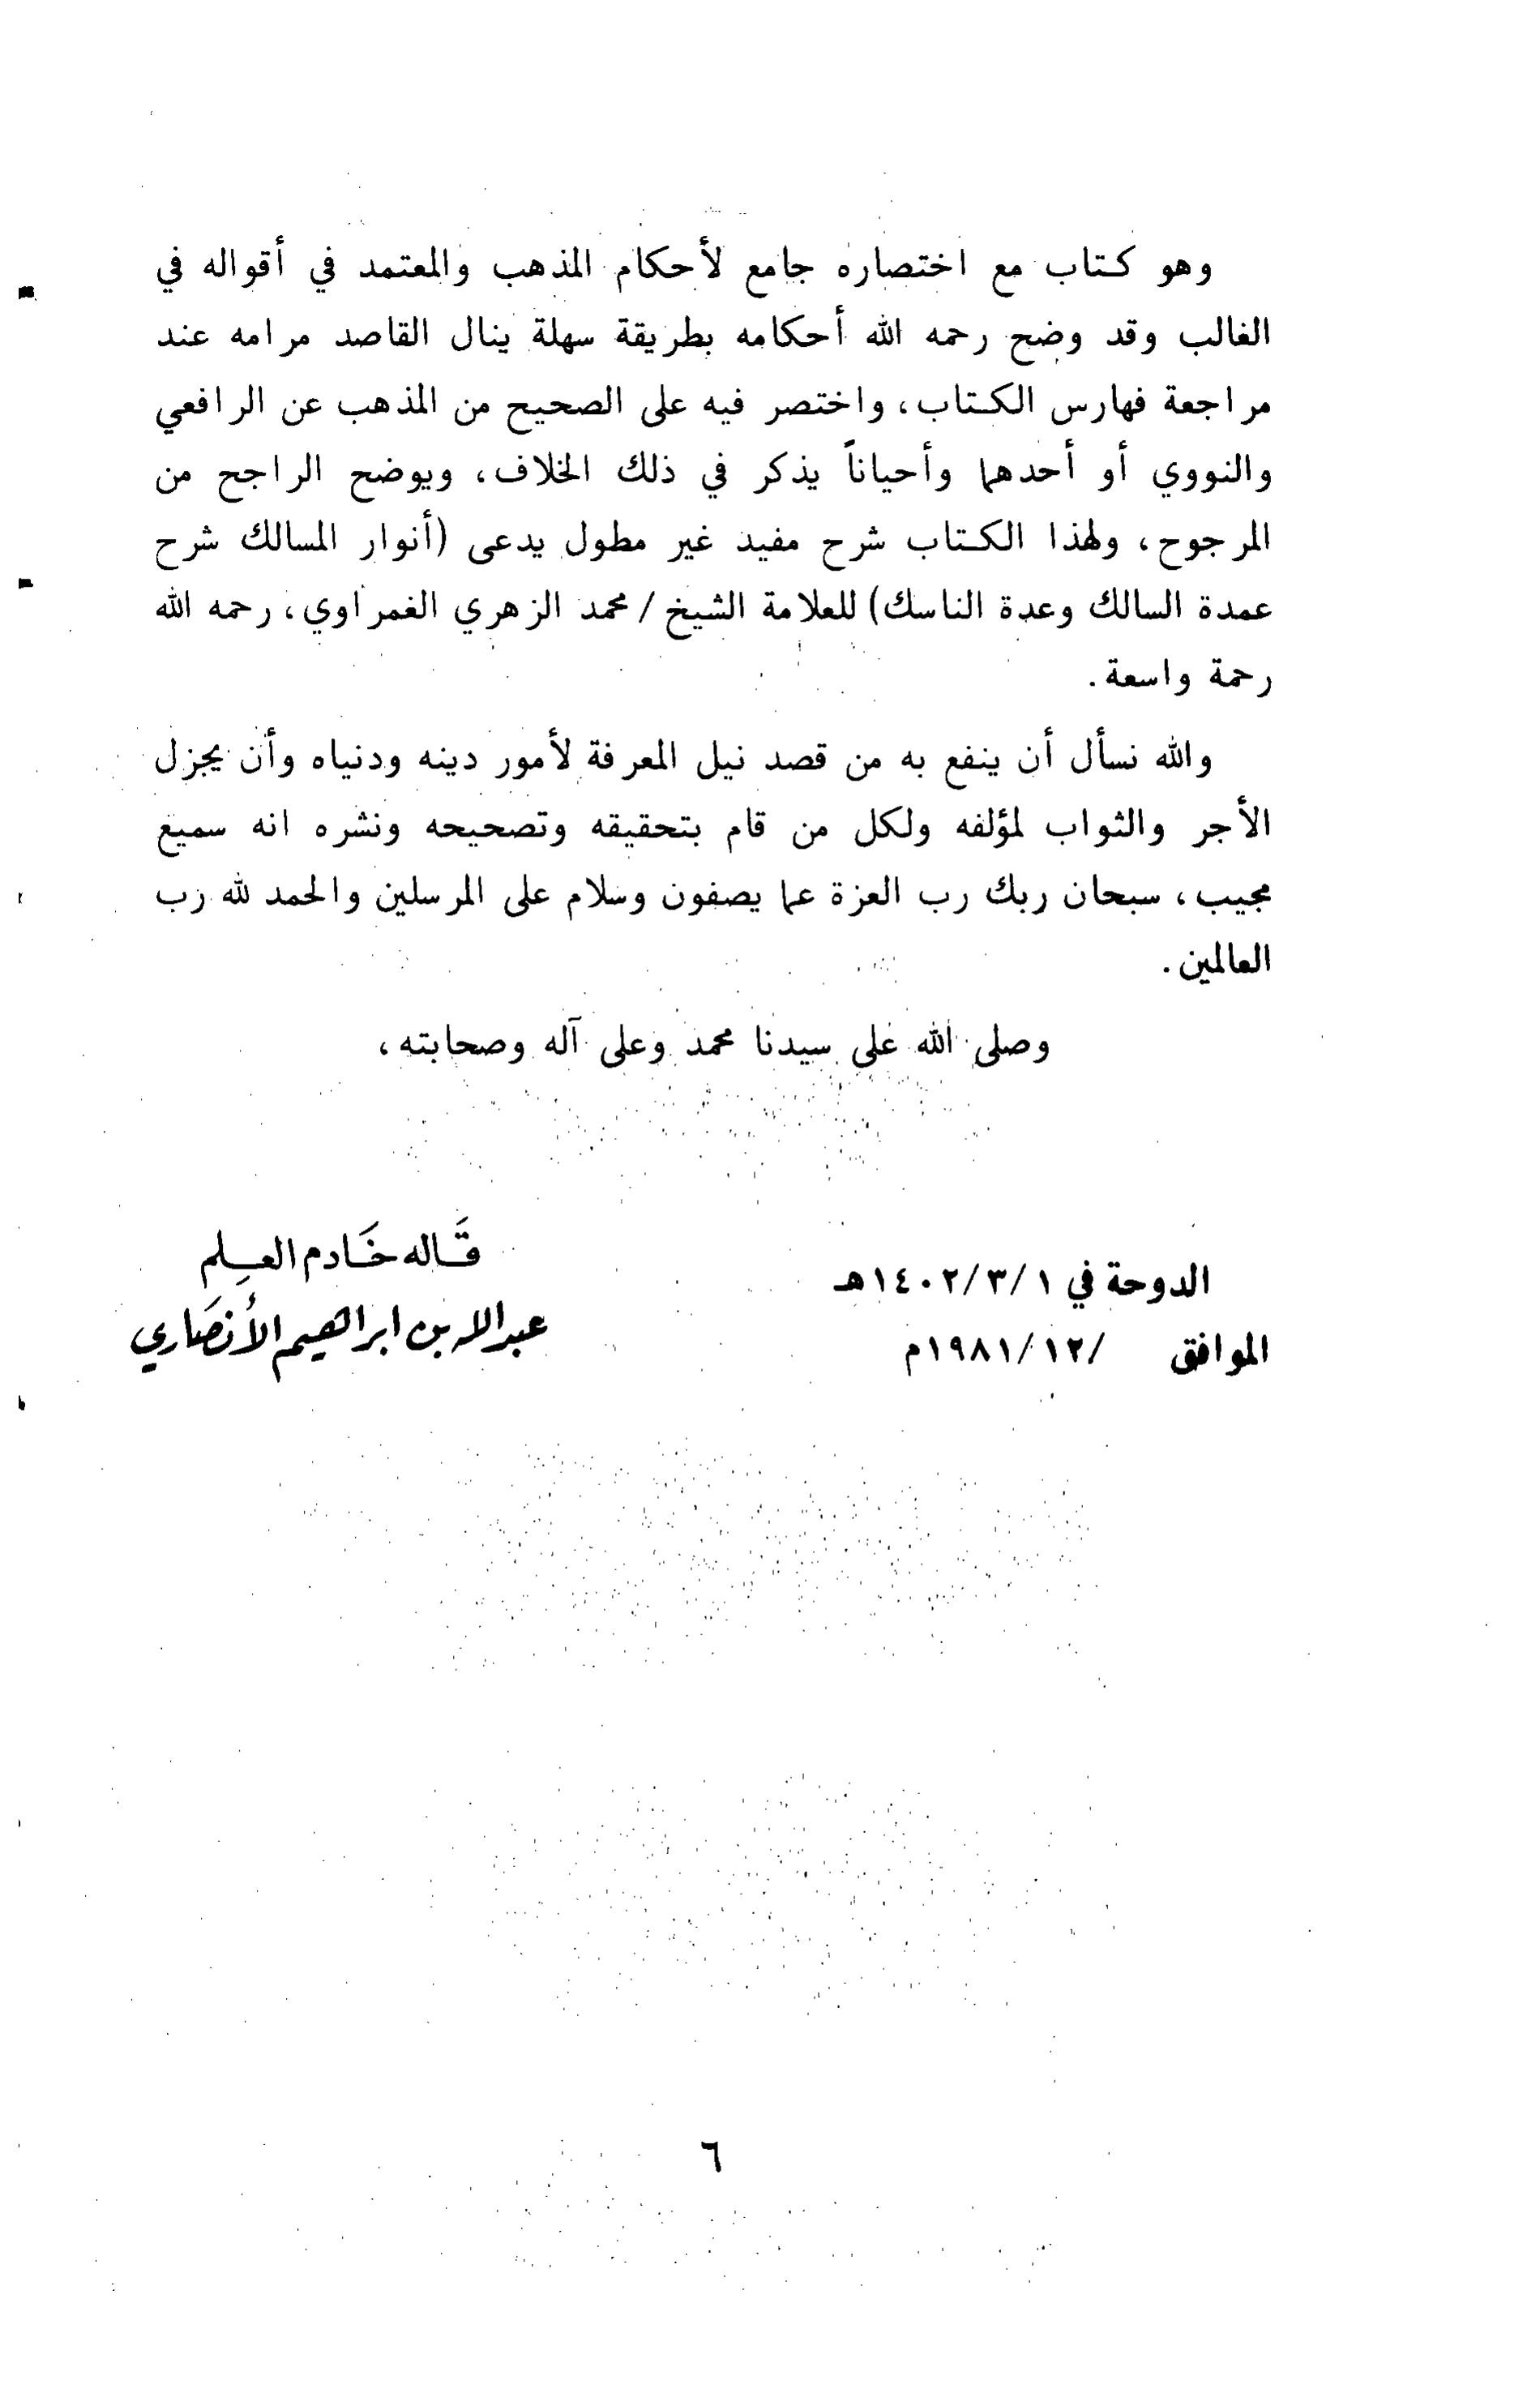 وهو كتاب مع اختصاره جامع لأحكام المذهب والمعتمد في أقواله في
الغالب وقد وضح رحمه الله أحكامه بطريقة سهلة ينال القاصد مرامه عند
مراجعة فهارس الكتاب، واختصر فيه على الصحيح من المذهب عن الرافعي
والنووي أو أحدهما وأحياناً يذكر في ذلك الخلاف، ويوضح الراجح من
المرجوح، ولهذا الكتاب شرح مفيد غير مطول يدعى (أنوار المسالك شرح
عمدة السالك وعدة الناسك) للعلامة الشيخ / محمد الزهري الغمراوي، رحمه الله
رحمة واسعة.
والله نسأل أن ينفع به من قصد نيل المعرفة لأمور دينه ودنياه وأن يجزل
الأجر والثواب لمؤلفه ولكل من قام بتحقيقه وتصحيحه ونشره انه سميع
مجيب، سبحان ربك رب العزة عما يصفون وسلام على المرسلين والحمد لله رب
العالمين.
وصلى الله على سيدنا محمد وعلى آله وصحابته،
الدوحة في ١/٣/١٤٠٢هـ
الموافق /١٢/١٩٨١م
قَاله خَادم العِلم
عبدالله بن ابراهيم الأنصَاري
٦